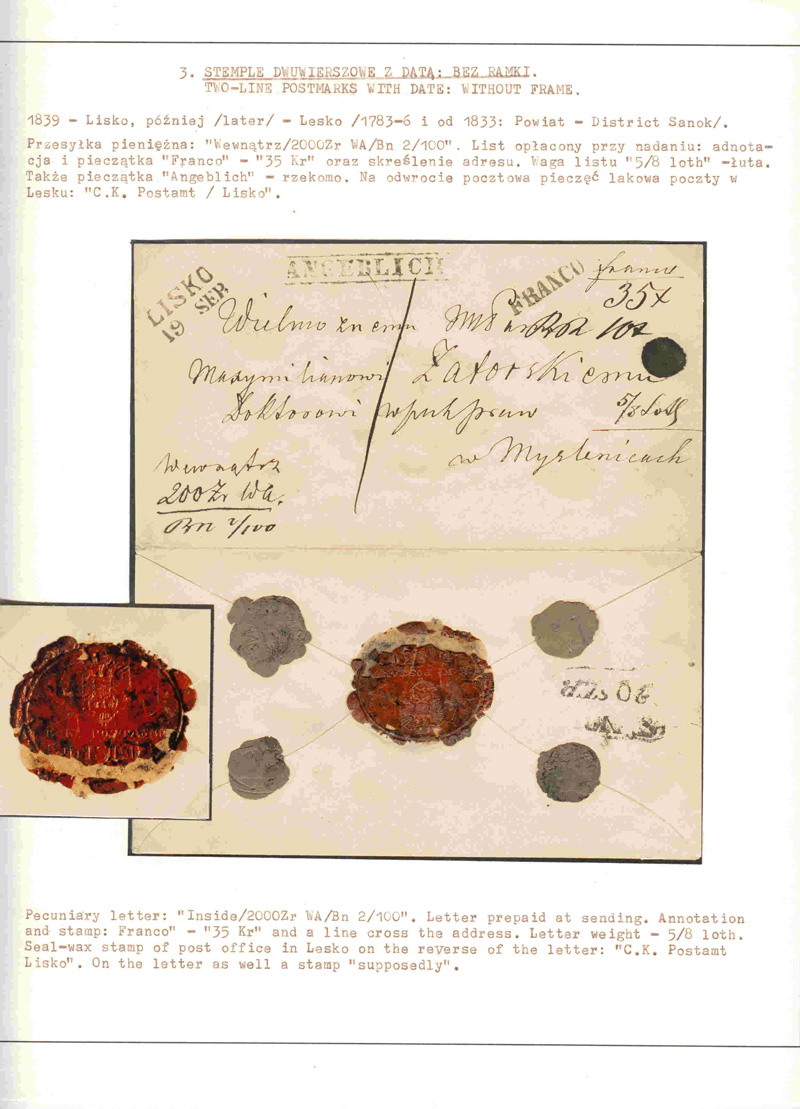 3. STEMPLE DWUWIERSZOWE Z DATĄ: BEZ RAMKI.
TWO-LINE POSTMARKS WITH DATE: WITHOUT FRAME.
1839 - Lisko, później /later/ - Lesko /1783-6 i od 1833: Powiat - District Sanok/.
Przesyłka pieniężna: "Wewnątrz/2000Zr WA/Bn 2/100". List opłacony przy nadaniu: adnota-
cja i pieczątka "Franco" - "35 Kr" oraz skreślenie adresu. Waga listu "5/8 loth" -łuta.
Także pieczątka "Angeblich" - rzekomo. Na odwrocie pocztowa pieczęć lakowa poczty w
Lesku: "C.K. Postamt / Lisko".
LISKO
19 SEP
ANGEBLICH
FRANCO
franco
35x
Wielmożnemu
Maxymilianowi Zatorskiemu
Doktorowi
5/8 Loth
w Myslenicach
Wewnątrz
200Zr Wa.
Bn 2/100
Pecuniary letter: "Inside/2000Zr WA/Bn 2/100". Letter prepaid at sending. Annotation
and stamp: Franco" - "35 Kr" and a line cross the address. Letter weight - 5/8 loth.
Seal-wax stamp of post office in Lesko on the reverse of the letter: "C.K. Postamt
Lisko". On the letter as well a stamp "supposedly".